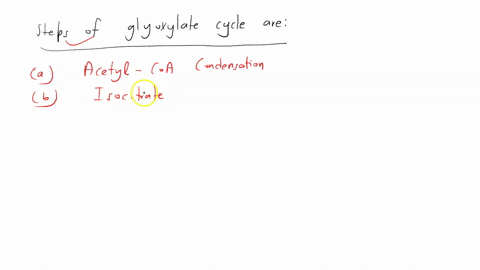 Steps of glyoxylate cycle are:
(a) Acetyl - CoA Condensation
(b) Isocitrate